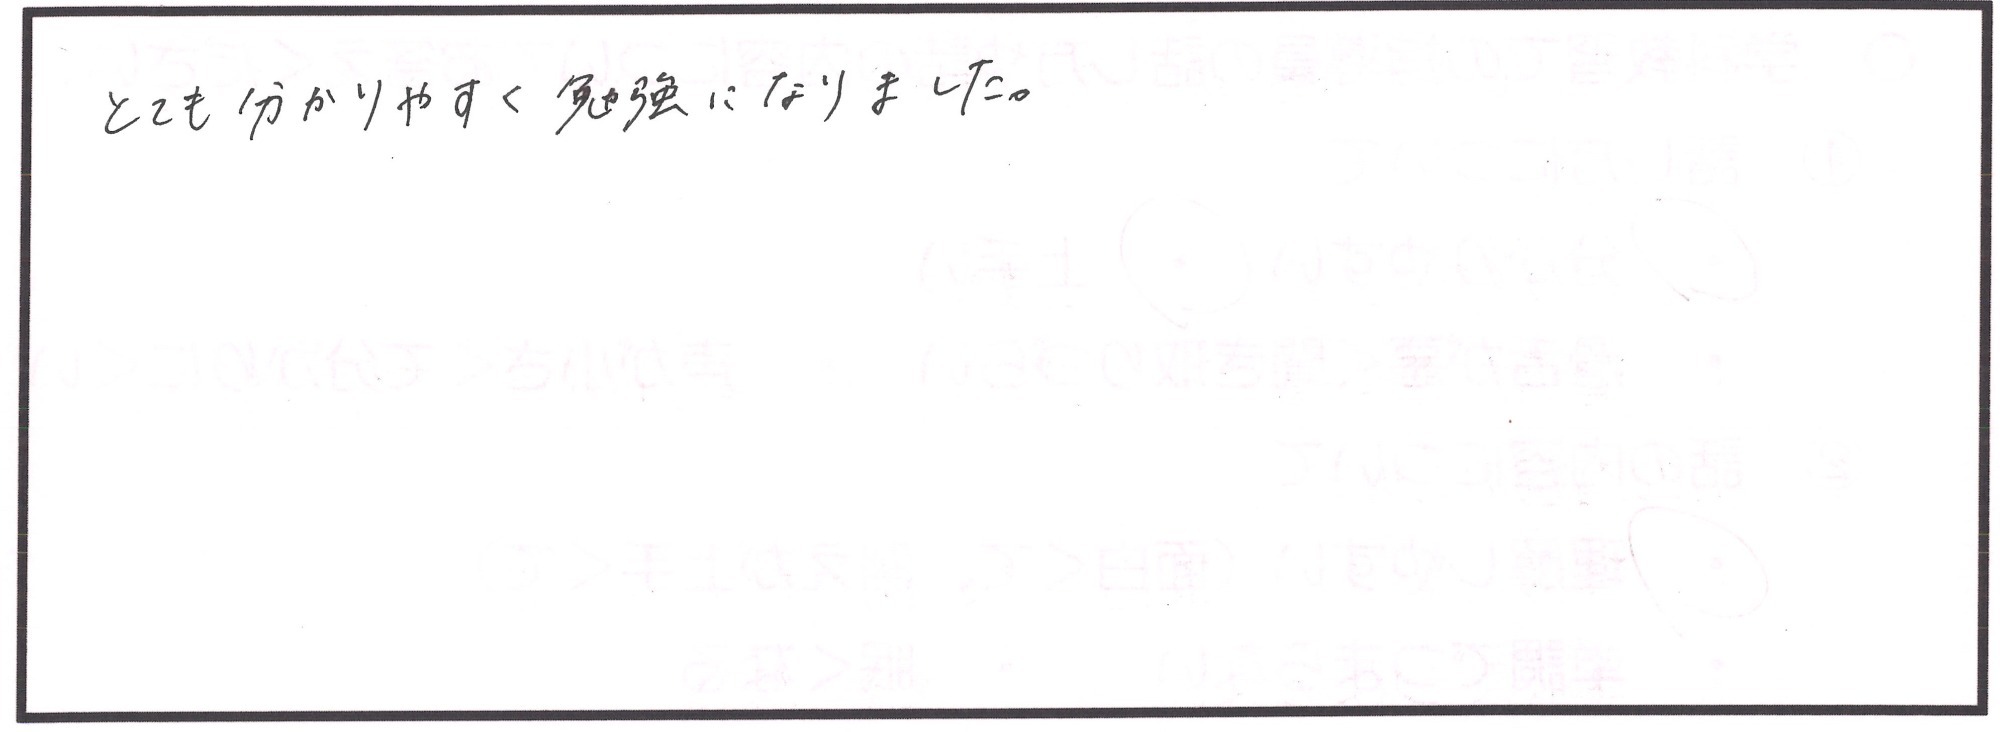 とても分かりやすく勉強になりました。